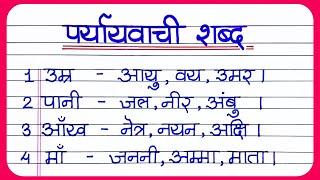 पर्यायवाची शब्द
1 उम्र - आयु, वय, उमर।
2 पानी - जल, नीर, अंबु ।
3 आँख - नेत्र, नयन, अक्षि ।
4 माँ - जननी, अम्मा, माता ।